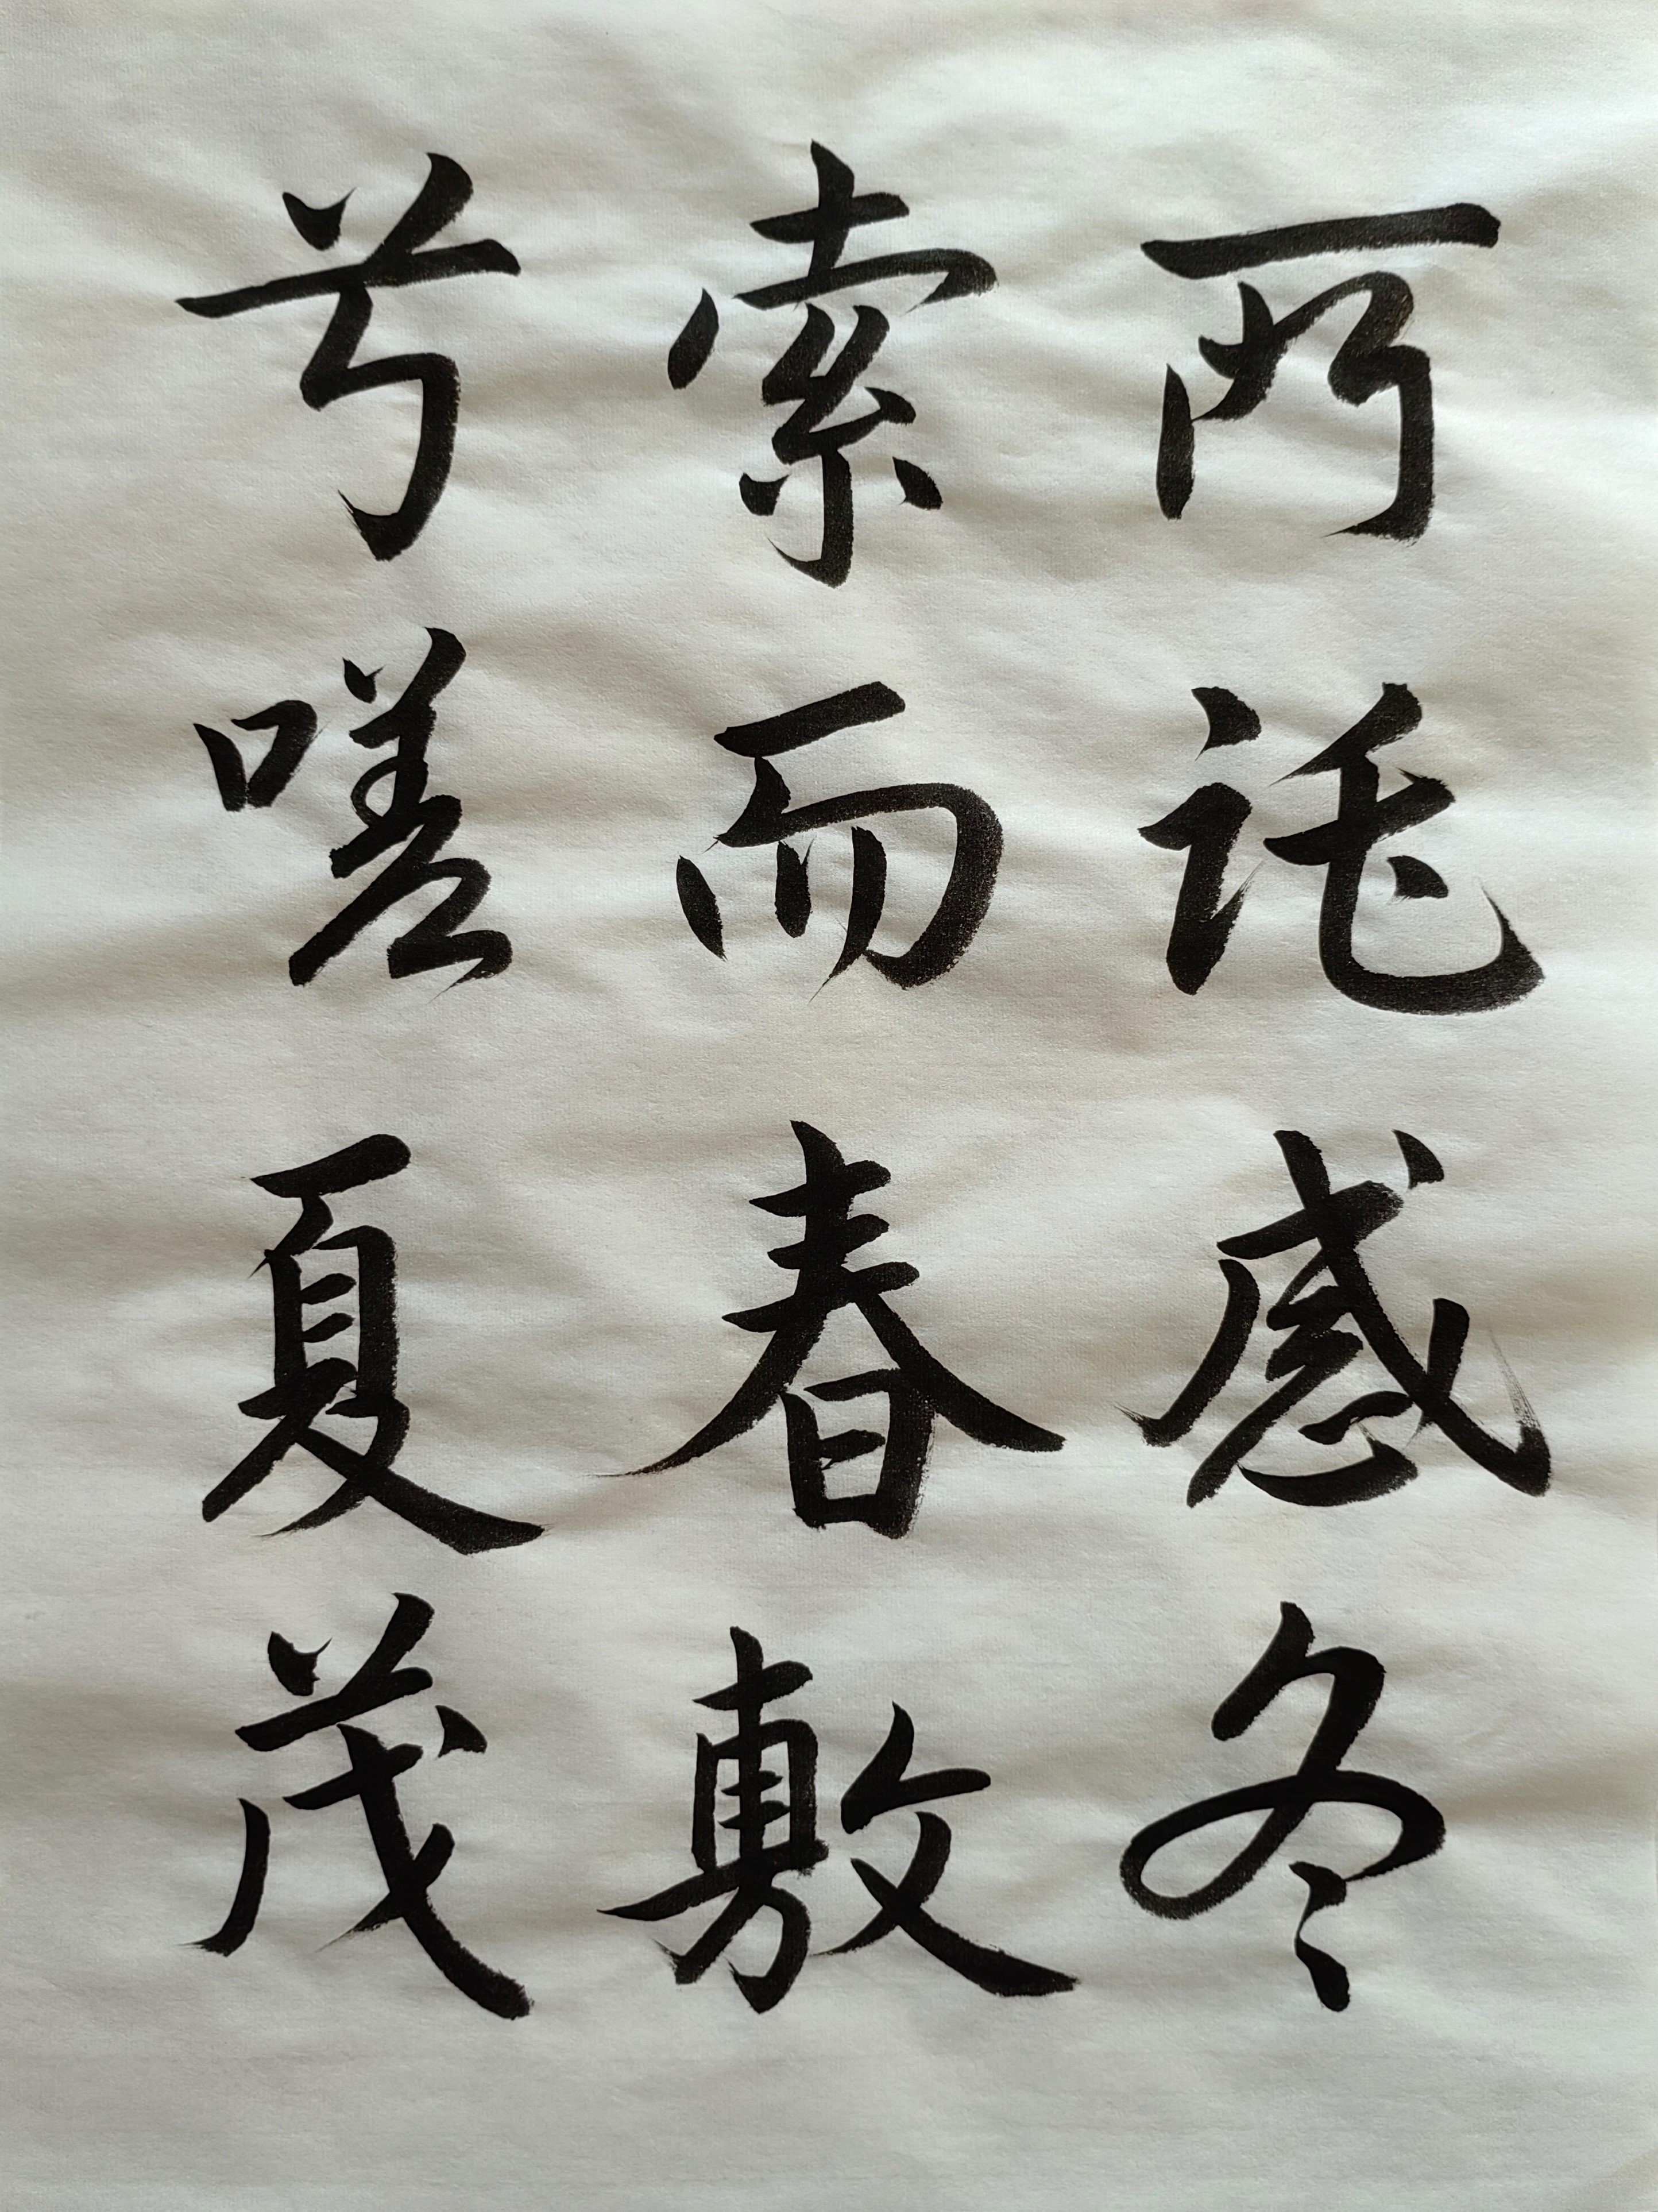 所託感冬
索而春敷
兮嗟夏茂